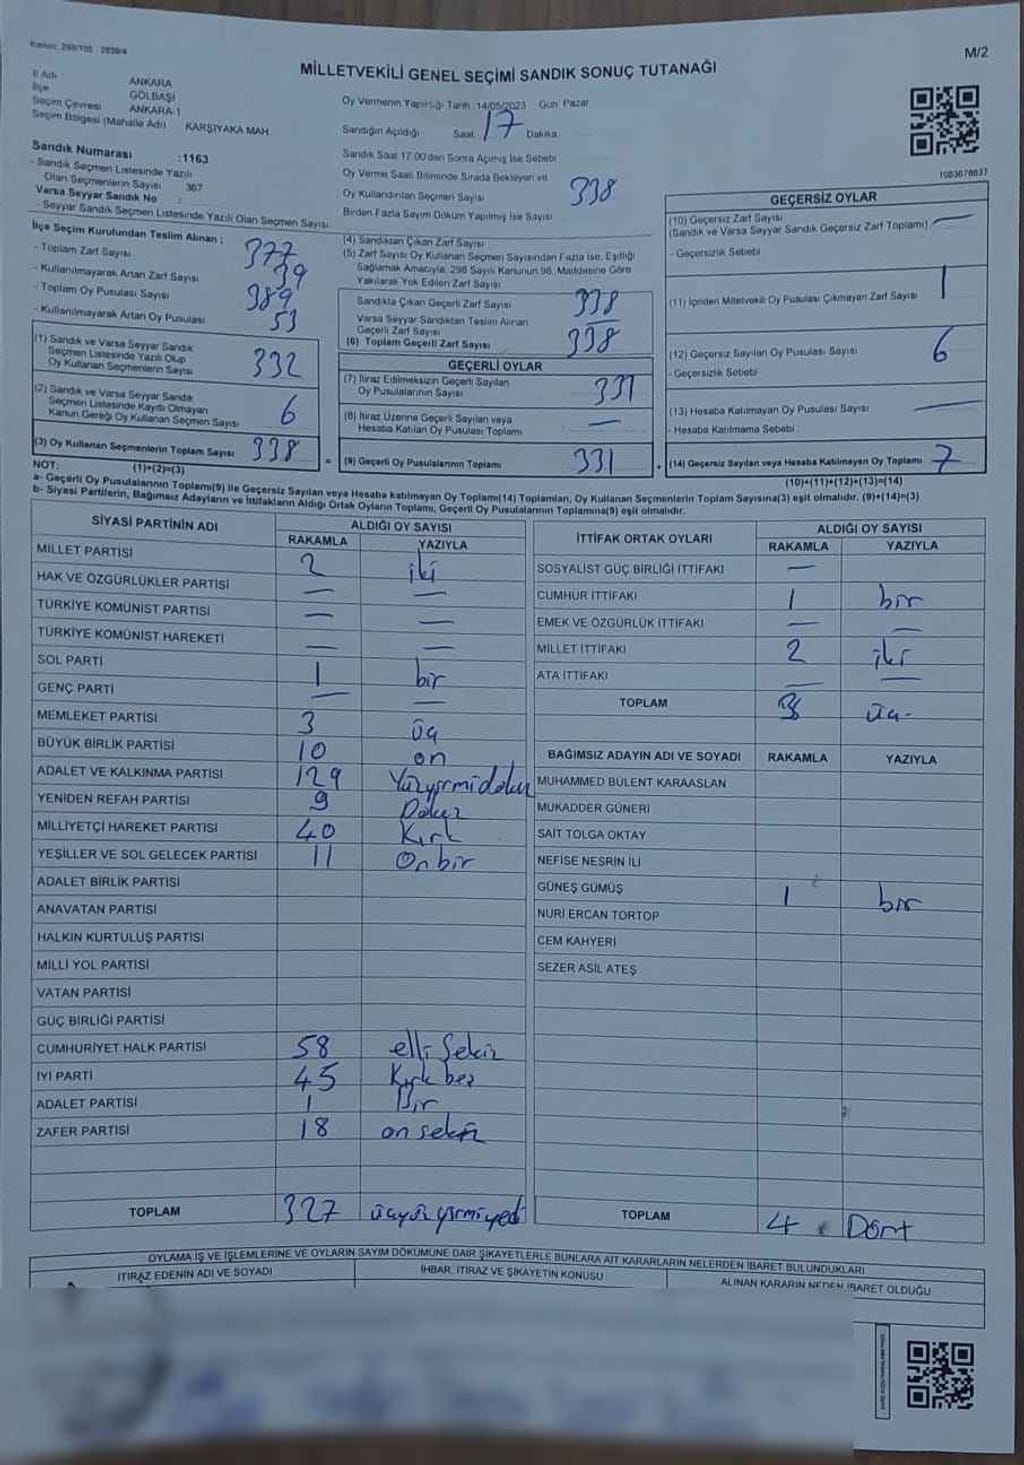 Kanun: 298/105 : 2839/4
M/2
MİLLETVEKİLİ GENEL SEÇİMİ SANDIK SONUÇ TUTANAĞI
İl Adı ANKARA
İlçe GÖLBAŞI
Seçim Çevresi ANKARA-1
Seçim Bölgesi (Mahalle Adı) KARŞIYAKA MAH.
Sandık Numarası :1163
- Sandık Seçmen Listesinde Yazılı
Olan Seçmenlerin Sayısı 367
Varsa Seyyar Sandık No :
- Seyyar Sandık Seçmen Listesinde Yazılı Olan Seçmen Sayısı
Oy Vermenin Yapıldığı Tarih :14/05/2023 Gün: Pazar
Sandığın Açıldığı Saat 17 Dakika
Sandık Saat 17.00'den Sonra Açılmış İse Sebebi
Oy Verme Saati Bitiminde Sırada Bekleyen ve
Oy Kullandırılan Seçmen Sayısı 338
Birden Fazla Sayım Döküm Yapılmış İse Sayısı
1083678637
İlçe Seçim Kurulundan Teslim Alınan ;
- Toplam Zarf Sayısı 377
- Kullanılmayarak Artan Zarf Sayısı 39
- Toplam Oy Pusulası Sayısı 389
- Kullanılmayarak Artan Oy Pusulası 53
(1) Sandık ve Varsa Seyyar Sandık
Seçmen Listesinde Yazılı Olup
Oy Kullanan Seçmenlerin Sayısı 332
(2) Sandık ve Varsa Seyyar Sandık
Seçmen Listesinde Kayıtlı Olmayan
Kanun Gereği Oy Kullanan Seçmen Sayısı 6
(3) Oy Kullanan Seçmenlerin Toplam Sayısı 338
(1)+(2)=(3)
(4) Sandıktan Çıkan Zarf Sayısı
(5) Zarf Sayısı Oy Kullanan Seçmen Sayısından Fazla İse, Eşitliği
Sağlamak Amacıyla, 298 Sayılı Kanunun 98. Maddesine Göre
Yakılarak Yok Edilen Zarf Sayısı
Sandıkta Çıkan Geçerli Zarf Sayısı 338
Varsa Seyyar Sandıktan Teslim Alınan
Geçerli Zarf Sayısı
(6) Toplam Geçerli Zarf Sayısı 338
GEÇERLİ OYLAR
(7) İtiraz Edilmeksizin Geçerli Sayılan
Oy Pusulalarının Sayısı 331
(8) İtiraz Üzerine Geçerli Sayılan veya
Hesaba Katılan Oy Pusulası Toplamı —
= (9) Geçerli Oy Pusulalarının Toplamı 331
GEÇERSİZ OYLAR
(10) Geçersiz Zarf Sayısı —
(Sandık ve Varsa Seyyar Sandık Geçersiz Zarf Toplamı)
- Geçersizlik Sebebi
(11) İçinden Milletvekili Oy Pusulası Çıkmayan Zarf Sayısı 1
(12) Geçersiz Sayılan Oy Pusulası Sayısı 6
- Geçersizlik Sebebi
(13) Hesaba Katılmayan Oy Pusulası Sayısı —
- Hesaba Katılmama Sebebi :
+ (14) Geçersiz Sayılan veya Hesaba Katılmayan Oy Toplamı 7
(10)+(11)+(12)+(13)=(14)
NOT:
a- Geçerli Oy Pusulalarının Toplamı(9) ile Geçersiz Sayılan veya Hesaba katılmayan Oy Toplamı(14) Toplamları, Oy Kullanan Seçmenlerin Toplam Sayısına(3) eşit olmalıdır. (9)+(14)=(3)
b- Siyasi Partilerin, Bağımsız Adayların ve İttifakların Aldığı Ortak Oyların Toplamı, Geçerli Oy Pusulalarının Toplamına(9) eşit olmalıdır.
SİYASİ PARTİNİN ADI ALDIĞI OY SAYISI
RAKAMLA YAZIYLA
MİLLET PARTİSİ 2 iki
HAK VE ÖZGÜRLÜKLER PARTİSİ — —
TÜRKİYE KOMÜNİST PARTİSİ — —
TÜRKİYE KOMÜNİST HAREKETİ — —
SOL PARTİ 1 bir
GENÇ PARTİ — —
MEMLEKET PARTİSİ 3 üç
BÜYÜK BİRLİK PARTİSİ 10 on
ADALET VE KALKINMA PARTİSİ 129 Yüzyirmidokuz
YENİDEN REFAH PARTİSİ 9 Dokuz
MİLLİYETÇİ HAREKET PARTİSİ 40 Kırk
YEŞİLLER VE SOL GELECEK PARTİSİ 11 Onbir
ADALET BİRLİK PARTİSİ
ANAVATAN PARTİSİ
HALKIN KURTULUŞ PARTİSİ
MİLLİ YOL PARTİSİ
VATAN PARTİSİ
GÜÇ BİRLİĞİ PARTİSİ
CUMHURİYET HALK PARTİSİ 58 elli Sekiz
İYİ PARTİ 45 Kırk beş
ADALET PARTİSİ 1 Bir
ZAFER PARTİSİ 18 on sekiz
TOPLAM 327 üçyüz yirmiyedi
İTTİFAK ORTAK OYLARI ALDIĞI OY SAYISI
RAKAMLA YAZIYLA
SOSYALİST GÜÇ BİRLİĞİ İTTİFAKI —
CUMHUR İTTİFAKI 1 bir
EMEK VE ÖZGÜRLÜK İTTİFAKI — —
MİLLET İTTİFAKI 2 iki
ATA İTTİFAKI — —
TOPLAM 3 üç-
BAĞIMSIZ ADAYIN ADI VE SOYADI RAKAMLA YAZIYLA
MUHAMMED BÜLENT KARAASLAN
MUKADDER GÜNERİ
SAİT TOLGA OKTAY
NEFİSE NESRİN İLİ
GÜNEŞ GÜMÜŞ 1 bir
NURİ ERCAN TORTOP
CEM KAHYERİ
SEZER ASİL ATEŞ
TOPLAM 4 Dört
OYLAMA İŞ VE İŞLEMLERİNE VE OYLARIN SAYIM DÖKÜMÜNE DAİR ŞİKAYETLERLE BUNLARA AİT KARARLARIN NELERDEN İBARET BULUNDUKLARI
İTİRAZ EDENİN ADI VE SOYADI İHBAR, İTİRAZ VE ŞİKAYETİN KONUSU ALINAN KARARIN NEDEN İBARET OLDUĞU